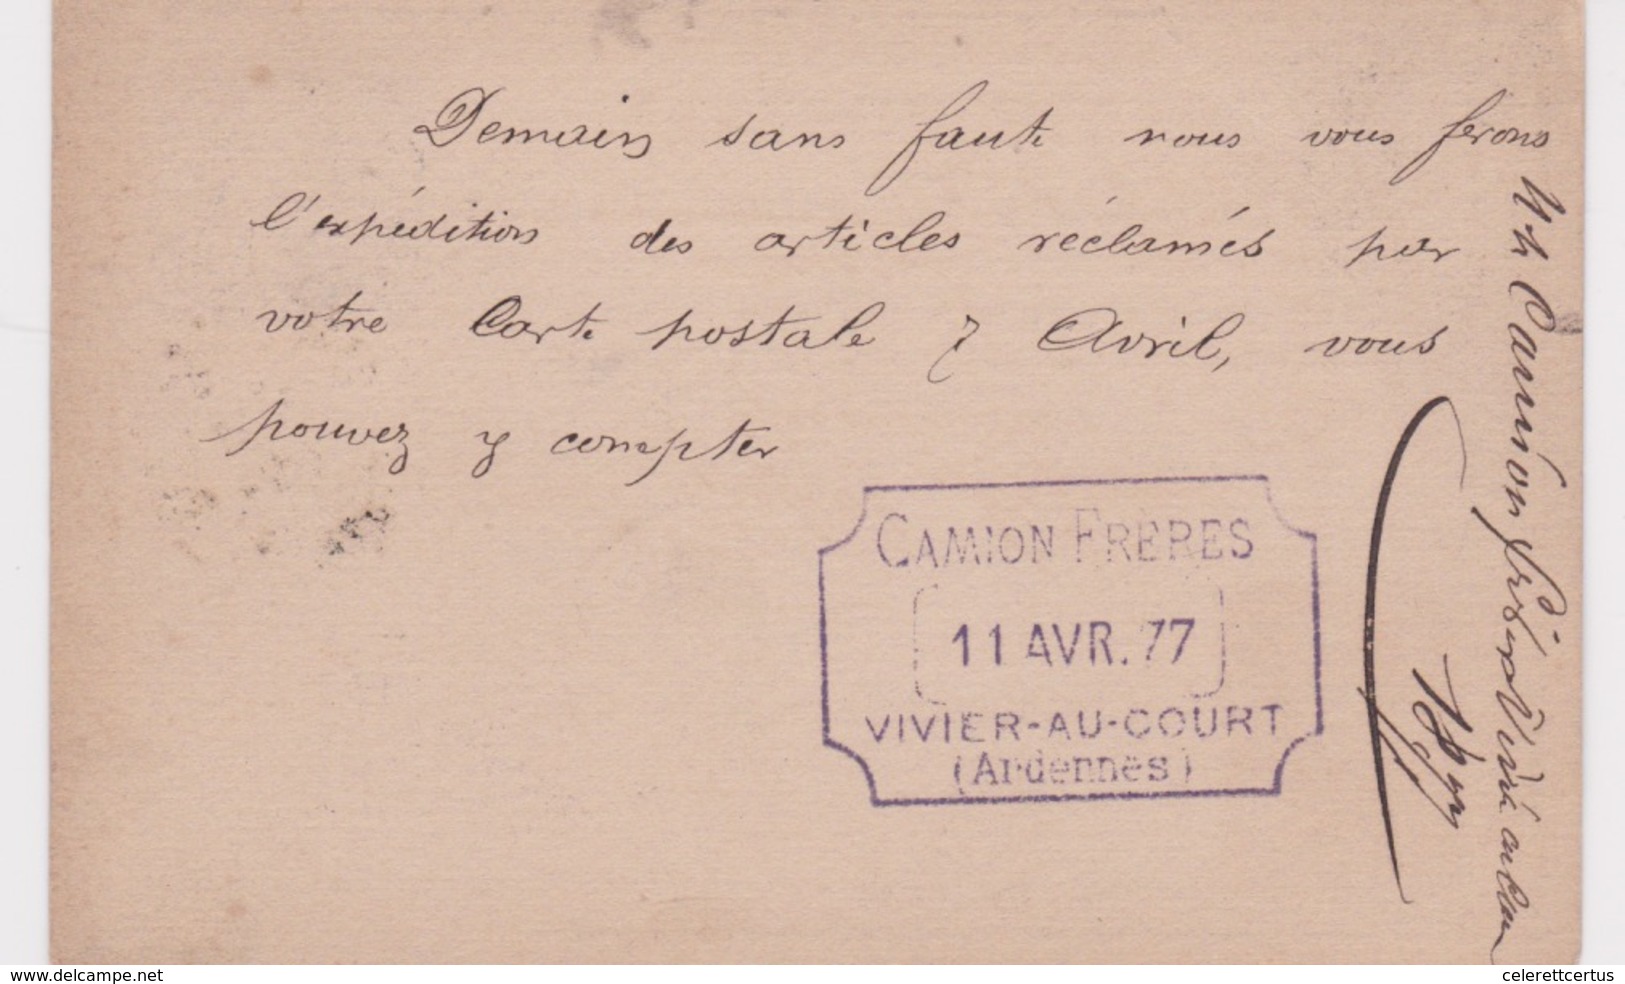 Demain sans faute nous vous ferons
l'expédition des articles réclamés par
votre Carte postale 7 Avril, vous
pouvez y compter
CAMION FRÈRES
11 AVR. 77
VIVIER-AU-COURT
(Ardennes)
Camion frères
1877
www.delcampe.net
celerettcertus